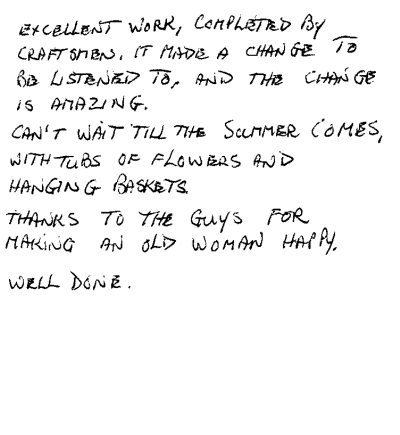 EXCELLENT WORK, COMPLETED BY
CRAFTSMEN. IT MADE A CHANGE TO
BE LISTENED TO, AND THE CHANGE
IS AMAZING.
CAN'T WAIT TILL THE SUMMER COMES,
WITH TUBS OF FLOWERS AND
HANGING BASKETS.
THANKS TO THE GUYS FOR
MAKING AN OLD WOMAN HAPPY.
WELL DONE.